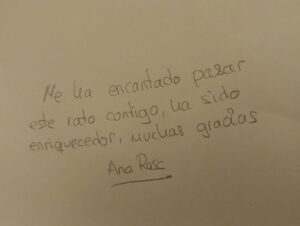 Me ha encantado pasar
este rato contigo, ha sido
enriquecedor, muchas gracias
Ana